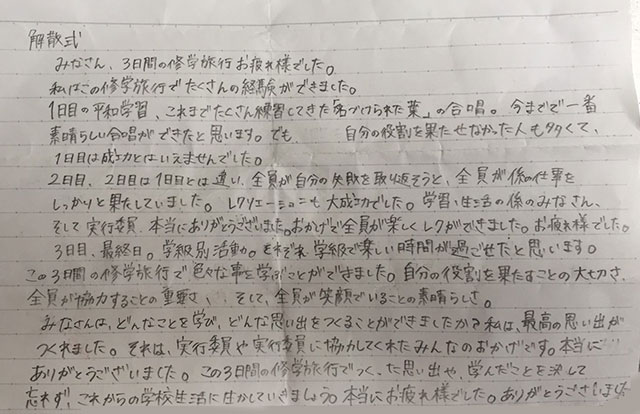 解散式
みなさん、3日間の修学旅行お疲れ様でした。
私はこの修学旅行でたくさんの経験ができました。
1日目の平和学習、これまでたくさん練習してきた名づけられた葉」の合唱。今までで一番
素晴らしい合唱ができたと思います。でも、自分の役割を果たせなかった人も多くて、
1日目は成功とはいえませんでした。
2日目、2日目は1日目とは違い、全員が自分の失敗を取り返そうと、全員が係の仕事を
しっかりと果たしていました。レクリエーションも大成功でした。学習、生活の係のみなさん、
そして実行委員、本当にありがとうございました。おかげで全員が楽しくレクができました。お疲れ様でした。
3日目、最終日。学級別活動。それぞれ学級で楽しい時間が過ごせたと思います。
この3日間の修学旅行で色々な事を学ぶことができました。自分の役割を果たすことの大切さ、
全員が協力することの重要さ、そして、全員が笑顔でいることの素晴らしさ。
みなさんは、どんなことを学び、どんな思い出をつくることができましたか?私は、最高の思い出が
つくれました。それは、実行委員や実行委員に協力してくれたみんなのおかげです。本当に
ありがとうございました。この3日間の修学旅行でつくった思い出や、学んだことを決して
忘れず、これからの学校生活に生かしていきましょう。本当にお疲れ様でした。ありがとうございました